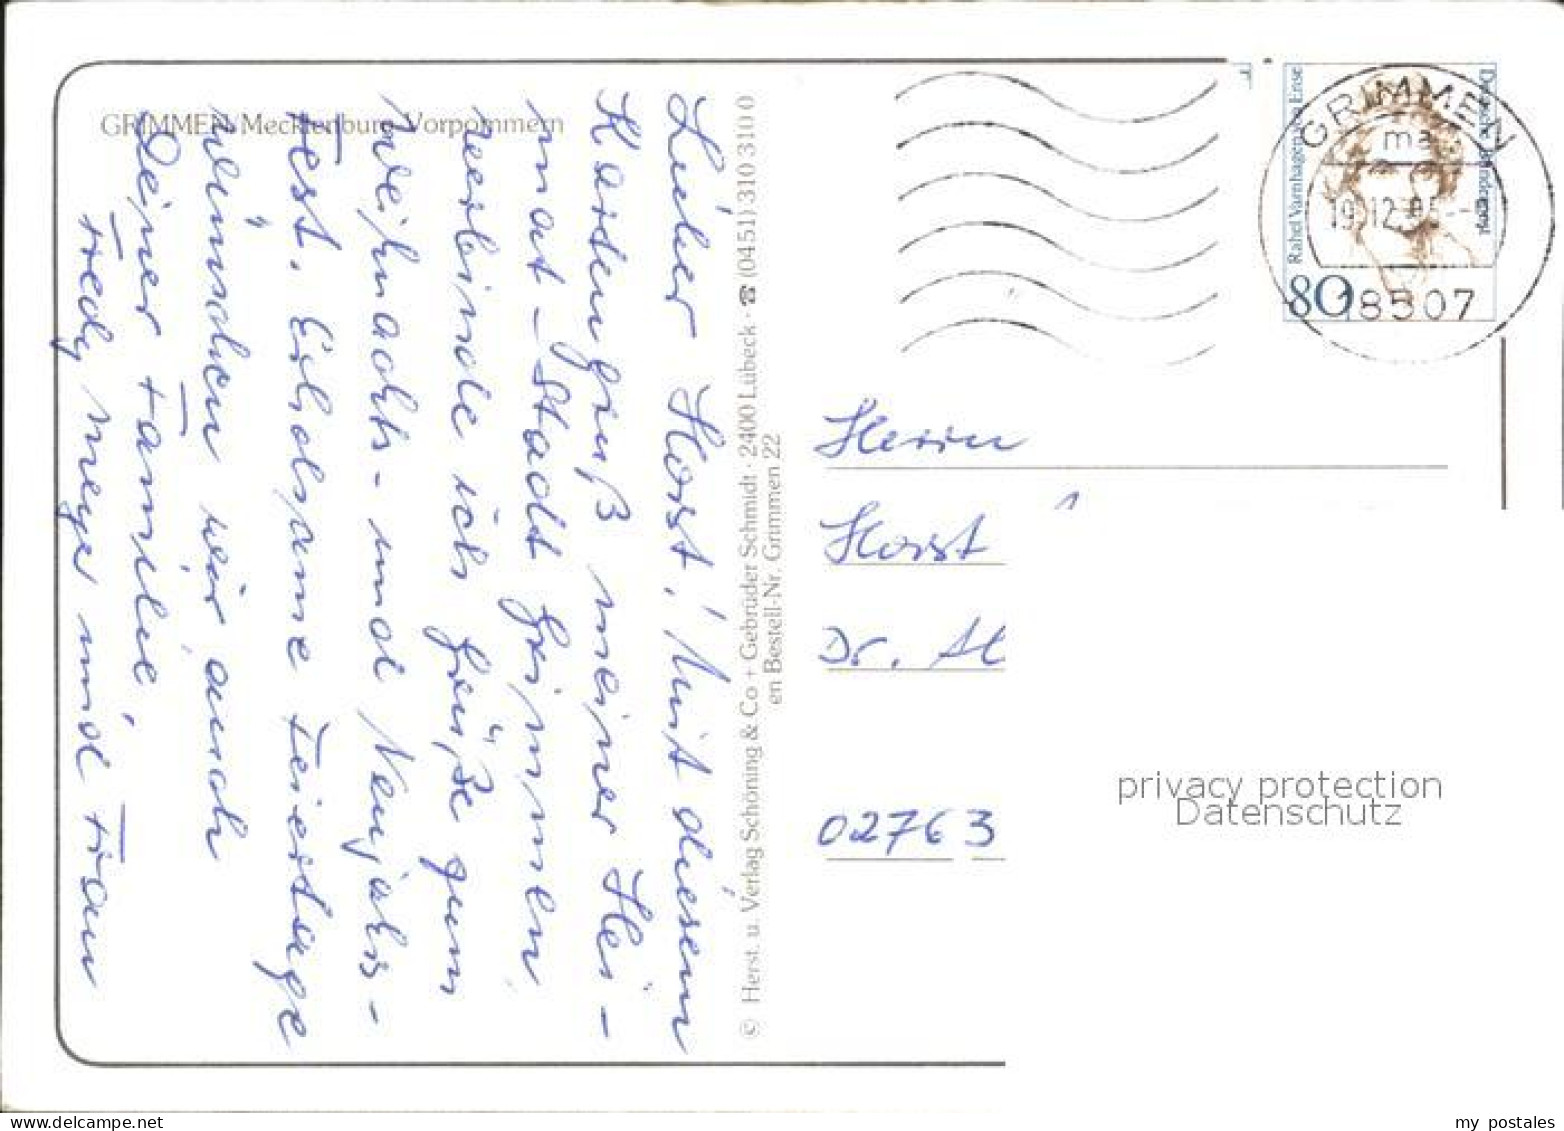 GRIMMEN/Mecklenburg-Vorpommern
Lieber Horst! Mit diesem
Kartengruß meiner Hei-
mat-Stadt Grimmen
verbinde ich Grüße zum
Weihnachts- und Neujahrs-
Fest. Erholsame Feiertage
wünschen wir auch
Deiner Familie,
Fredy Meyer und Frau
© Herst. u. Verlag Schöning & Co + Gebrüder Schmidt · 2400 Lübeck · ☎ (0451) 310 310 0
en Bestell-Nr. Grimmen 22
Rahel Varnhagen von Ense
Deutsche Bundespost
80
GRIMMEN
ma
19.12.95
18507
Herrn
Horst
Dr. Al
02763
privacy protection
Datenschutz
my postales